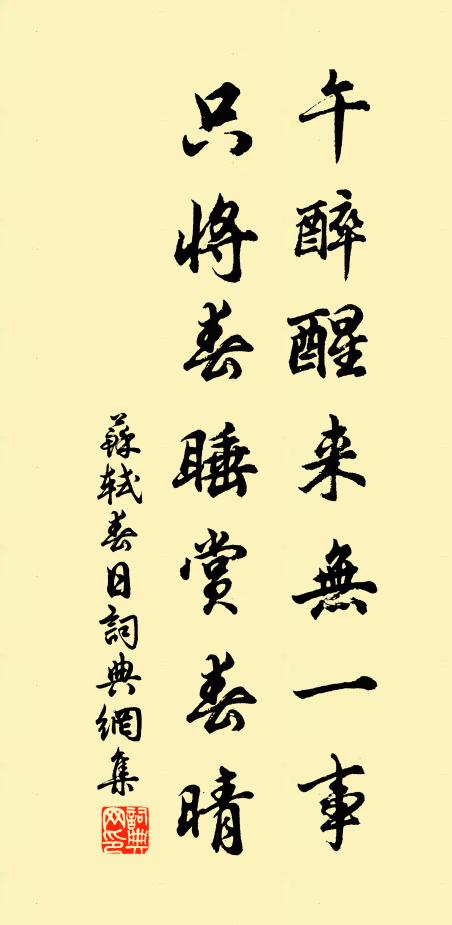 午醉醒来無一事
只将春睡賞春晴
蘇軾春日詞典網集
詞典网印